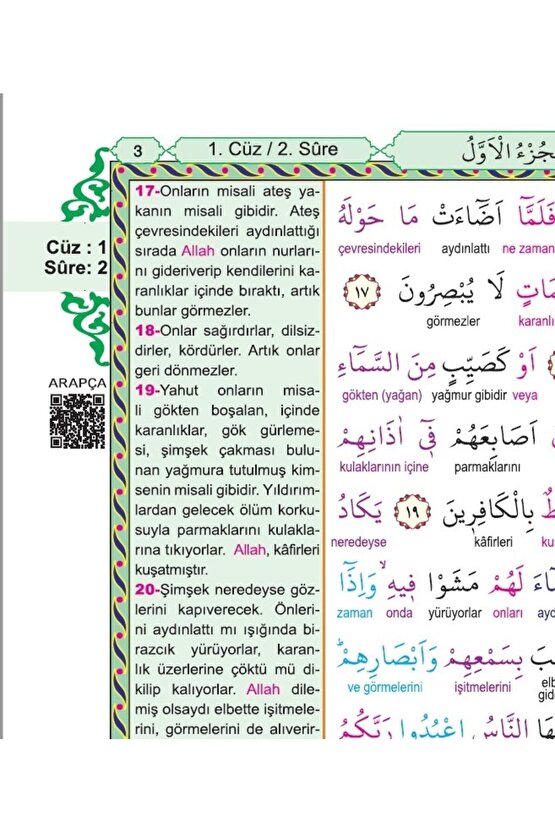 3
1. Cüz / 2. Sûre
اَلْاَوَّلُ
Cüz : 1
Sûre: 2
ARAPÇA
17-Onların misali ateş ya-
kanın misali gibidir. Ateş
çevresindekileri aydınlattığı
sırada Allah onların nurları-
nı gideriverip kendilerini ka-
ranlıklar içinde bıraktı, artık
bunlar görmezler.
18-Onlar sağırdırlar, dilsiz-
dirler, kördürler. Artık onlar
geri dönmezler.
19-Yahut onların misa-
li gökten boşalan, içinde
karanlıklar, gök gürleme-
si, şimşek çakması bulu-
nan yağmura tutulmuş kim-
senin misali gibidir. Yıldırım-
lardan gelecek ölüm korku-
suyla parmaklarını kulakla-
rına tıkıyorlar. Allah, kâfirleri
kuşatmıştır.
20-Şimşek neredeyse göz-
lerini kapıverecek. Önleri-
ni aydınlattı mı ışığında bi-
razcık yürüyorlar, karan-
lık üzerlerine çöktü mü di-
kilip kalıyorlar. Allah dile-
miş olsaydı elbette işitmele-
rini, görmelerini de alıverir-
فَلَمَّٓا اَضَٓاءَتْ مَا حَوْلَهُ
çevresindekileri aydınlattı ne zaman
لَا يُبْصِرُونَ ﴿١٧﴾
görmezler
اَوْ كَصَيِّبٍ مِنَ السَّمَٓاءِ
gökten (yağan) yağmur gibidir veya
اَصَابِعَهُمْ ف۪ٓي اٰذَانِهِمْ
kulaklarının içine parmaklarını
بِالْكَافِر۪ينَ ﴿١٩﴾ يَكَادُ
neredeyse kâfirleri
لَهُمْ مَشَوْا ف۪يهِۙ وَاِذَٓا
zaman onda yürüyorlar onları
بِسَمْعِهِمْ وَاَبْصَارِهِمْۜ
ve görmelerini işitmelerini
النَّاسُ اعْبُدُوا رَبَّكُمُ